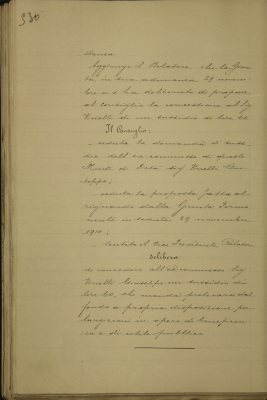 330
denza.
Aggiunge il Relatore che la Giun-
ta in sua adunanza 29 novem-
bre u. s. ha deliberato di proporre
al consiglio la concessione al Sig
di un sussidio di lire 60
Il Consiglio:
veduta la domanda di sussi-
dio dell'ex commesso di questo
Monte di Pietà Sig Giu-
seppe;
veduta la proposta fatta al
riguardo dalla Giunta Perma-
nente in seduta 29 novembre
1910;
sentito il Vice Presidente, Relatore
delibera
di concedere all'ex commesso Sig
Giuseppe un sussidio di
lire 60, che manda prelevarsi dal
fondo a propria disposizione per
largizioni in opere di beneficen-
za e di utilità pubblica